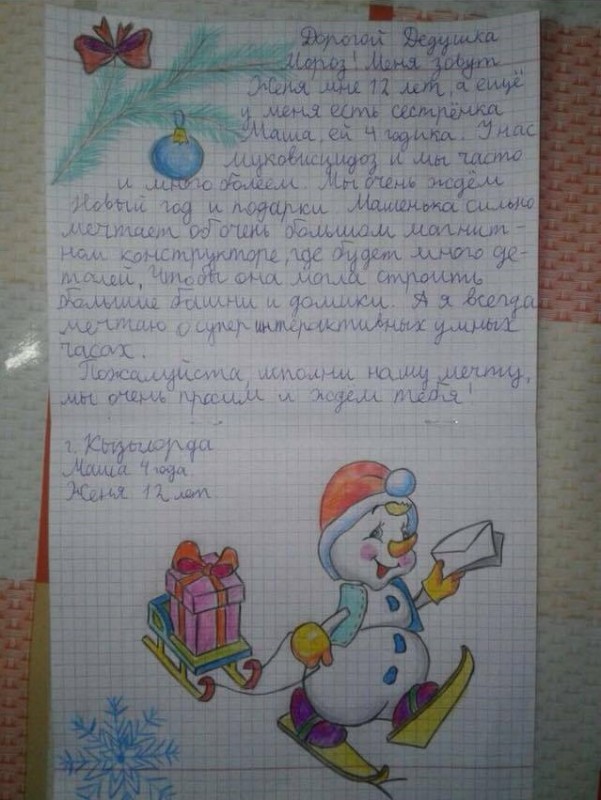 Дорогой Дедушка
Мороз! Меня зовут
Женя мне 12 лет, а ещё
у меня есть сестрёнка
Маша, ей 4 годика. У нас
муковисцидоз и мы часто
и много болеем. Мы очень ждём
Новый год и подарки. Машенька сильно
мечтает об очень большом магнит-
ном конструкторе, где будет много де-
талей, чтобы она могла строить
большие башни и домики. А я всегда
мечтаю о супер интерактивных умных
часах.
Пожалуйста, исполни нашу мечту,
мы очень просим и ждем тебя!
г. Кызылорда
Маша 4 года.
Женя 12 лет.